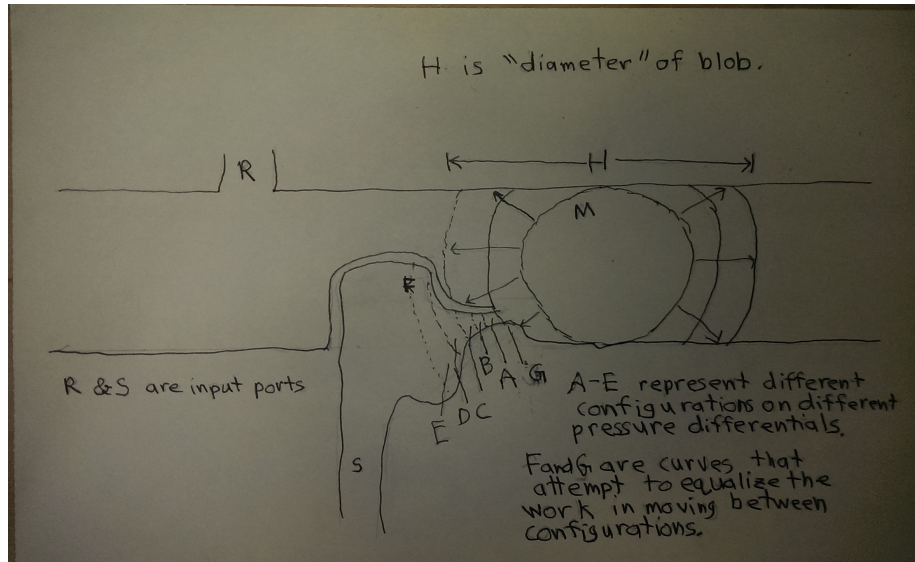 H is "diameter" of blob.
R
H
M
F
B
A
G
E
D
C
S
R & S are input ports
A-E represent different
configurations on different
pressure differentials.
F and G are curves that
attempt to equalize the
work in moving between
configurations.